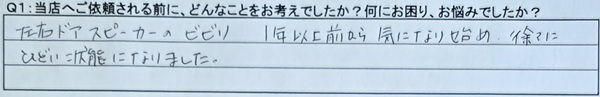 Q1:当店へご依頼される前に、どんなことをお考えでしたか？何にお困り、お悩みでしたか？
左右ドアスピーカーのビビリ 1年以上前から気になり始め、徐々に
ひどい状態になりました。